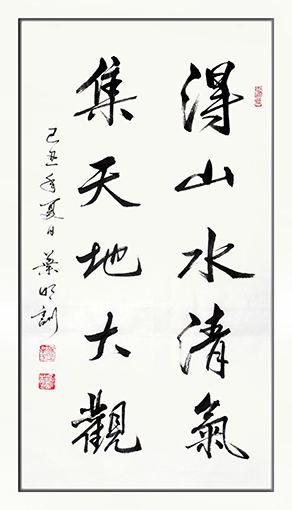 得山水清氣
集天地大觀
己丑年夏日葉明訓